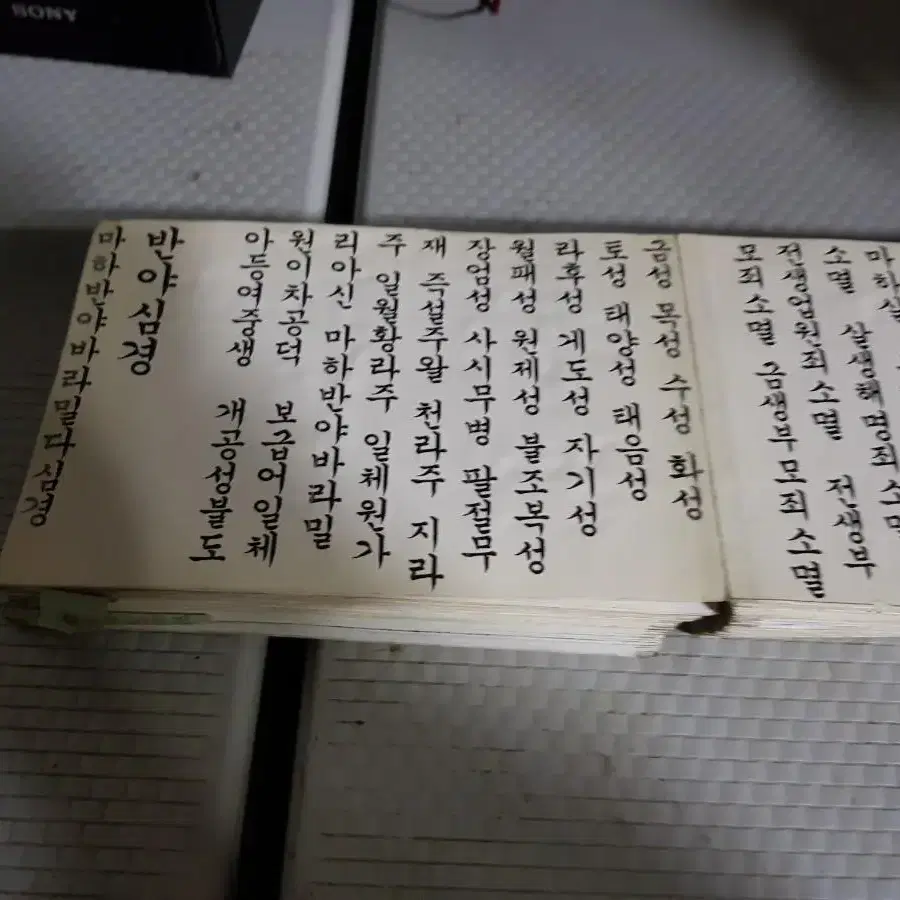 SONY
마하살
소멸 살생해명죄소멸 전생부
전생업원죄소멸
모죄소멸 금생부모죄소멸
금성 목성 수성 화성
토성 태양성 태음성
라후성 게도성 자기성
월패성 원제성 불조복성
장엄성 사시무병 팔절무
재 즉설주왈 천라주 지라
주 일월황라주 일체원가
리아신 마하반야바라밀
원이차공덕 보급어일체
아등여중생 개공성불도
반야심경
마하반야바라밀다심경